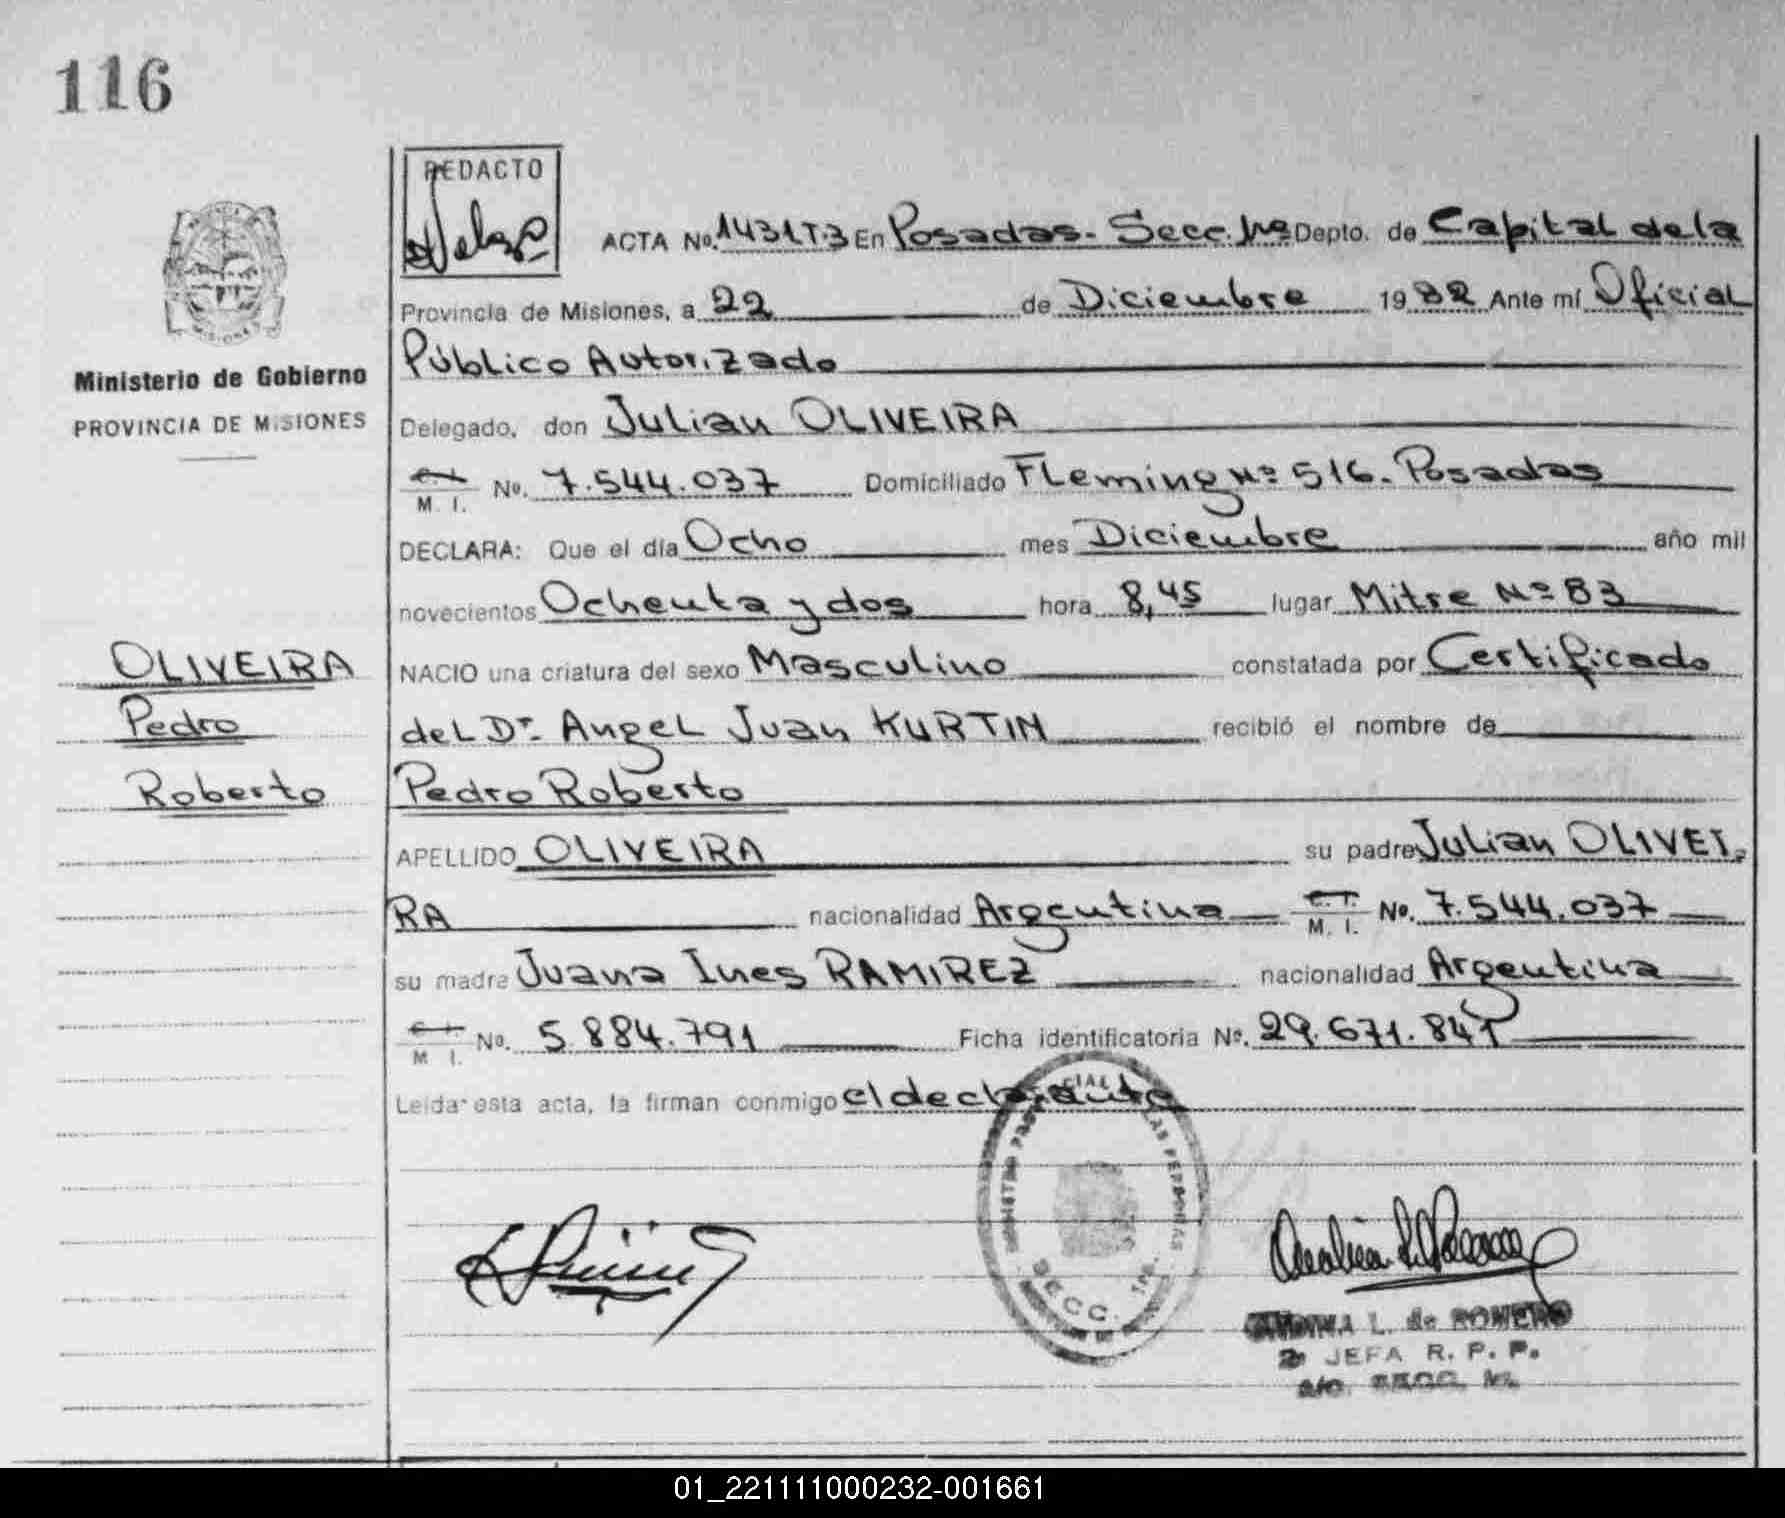 116
REDACTO
ACTA No. 1431T3 En Posadas - Secc. 1ra Depto. de Capital de la
Provincia de Misiones, a 22 de Diciembre 1982 Ante mí Oficial
Ministerio de Gobierno
Público Autorizado
PROVINCIA DE MISIONES
Delegado, don Julian OLIVEIRA
C.I. M. I. No. 7.544.037 Domiciliado Fleming Nº 516. Posadas
DECLARA: Que el día Ocho mes Diciembre año mil
novecientos Ochenta y dos hora 8,45 lugar Mitre Nº 83
OLIVEIRA
NACIO una criatura del sexo Masculino constatada por Certificado
Pedro
del Dr. Angel Juan KURTIN recibió el nombre de
Roberto
Pedro Roberto
APELLIDO OLIVEIRA su padre Julian OLIVEI-
RA nacionalidad Argentina C.I. M. I. No. 7.544.037
su madre Juana Ines RAMIREZ nacionalidad Argentina
C.I. M I. No. 5.884.791 Ficha identificatoria Nº. 29.671.841
Leída esta acta, la firman conmigo el declarante
SECC. 1ra.
L. de ROMERO
2º JEFA R. P. P.
a/c. SECC. 1ra.
01_221111000232-001661